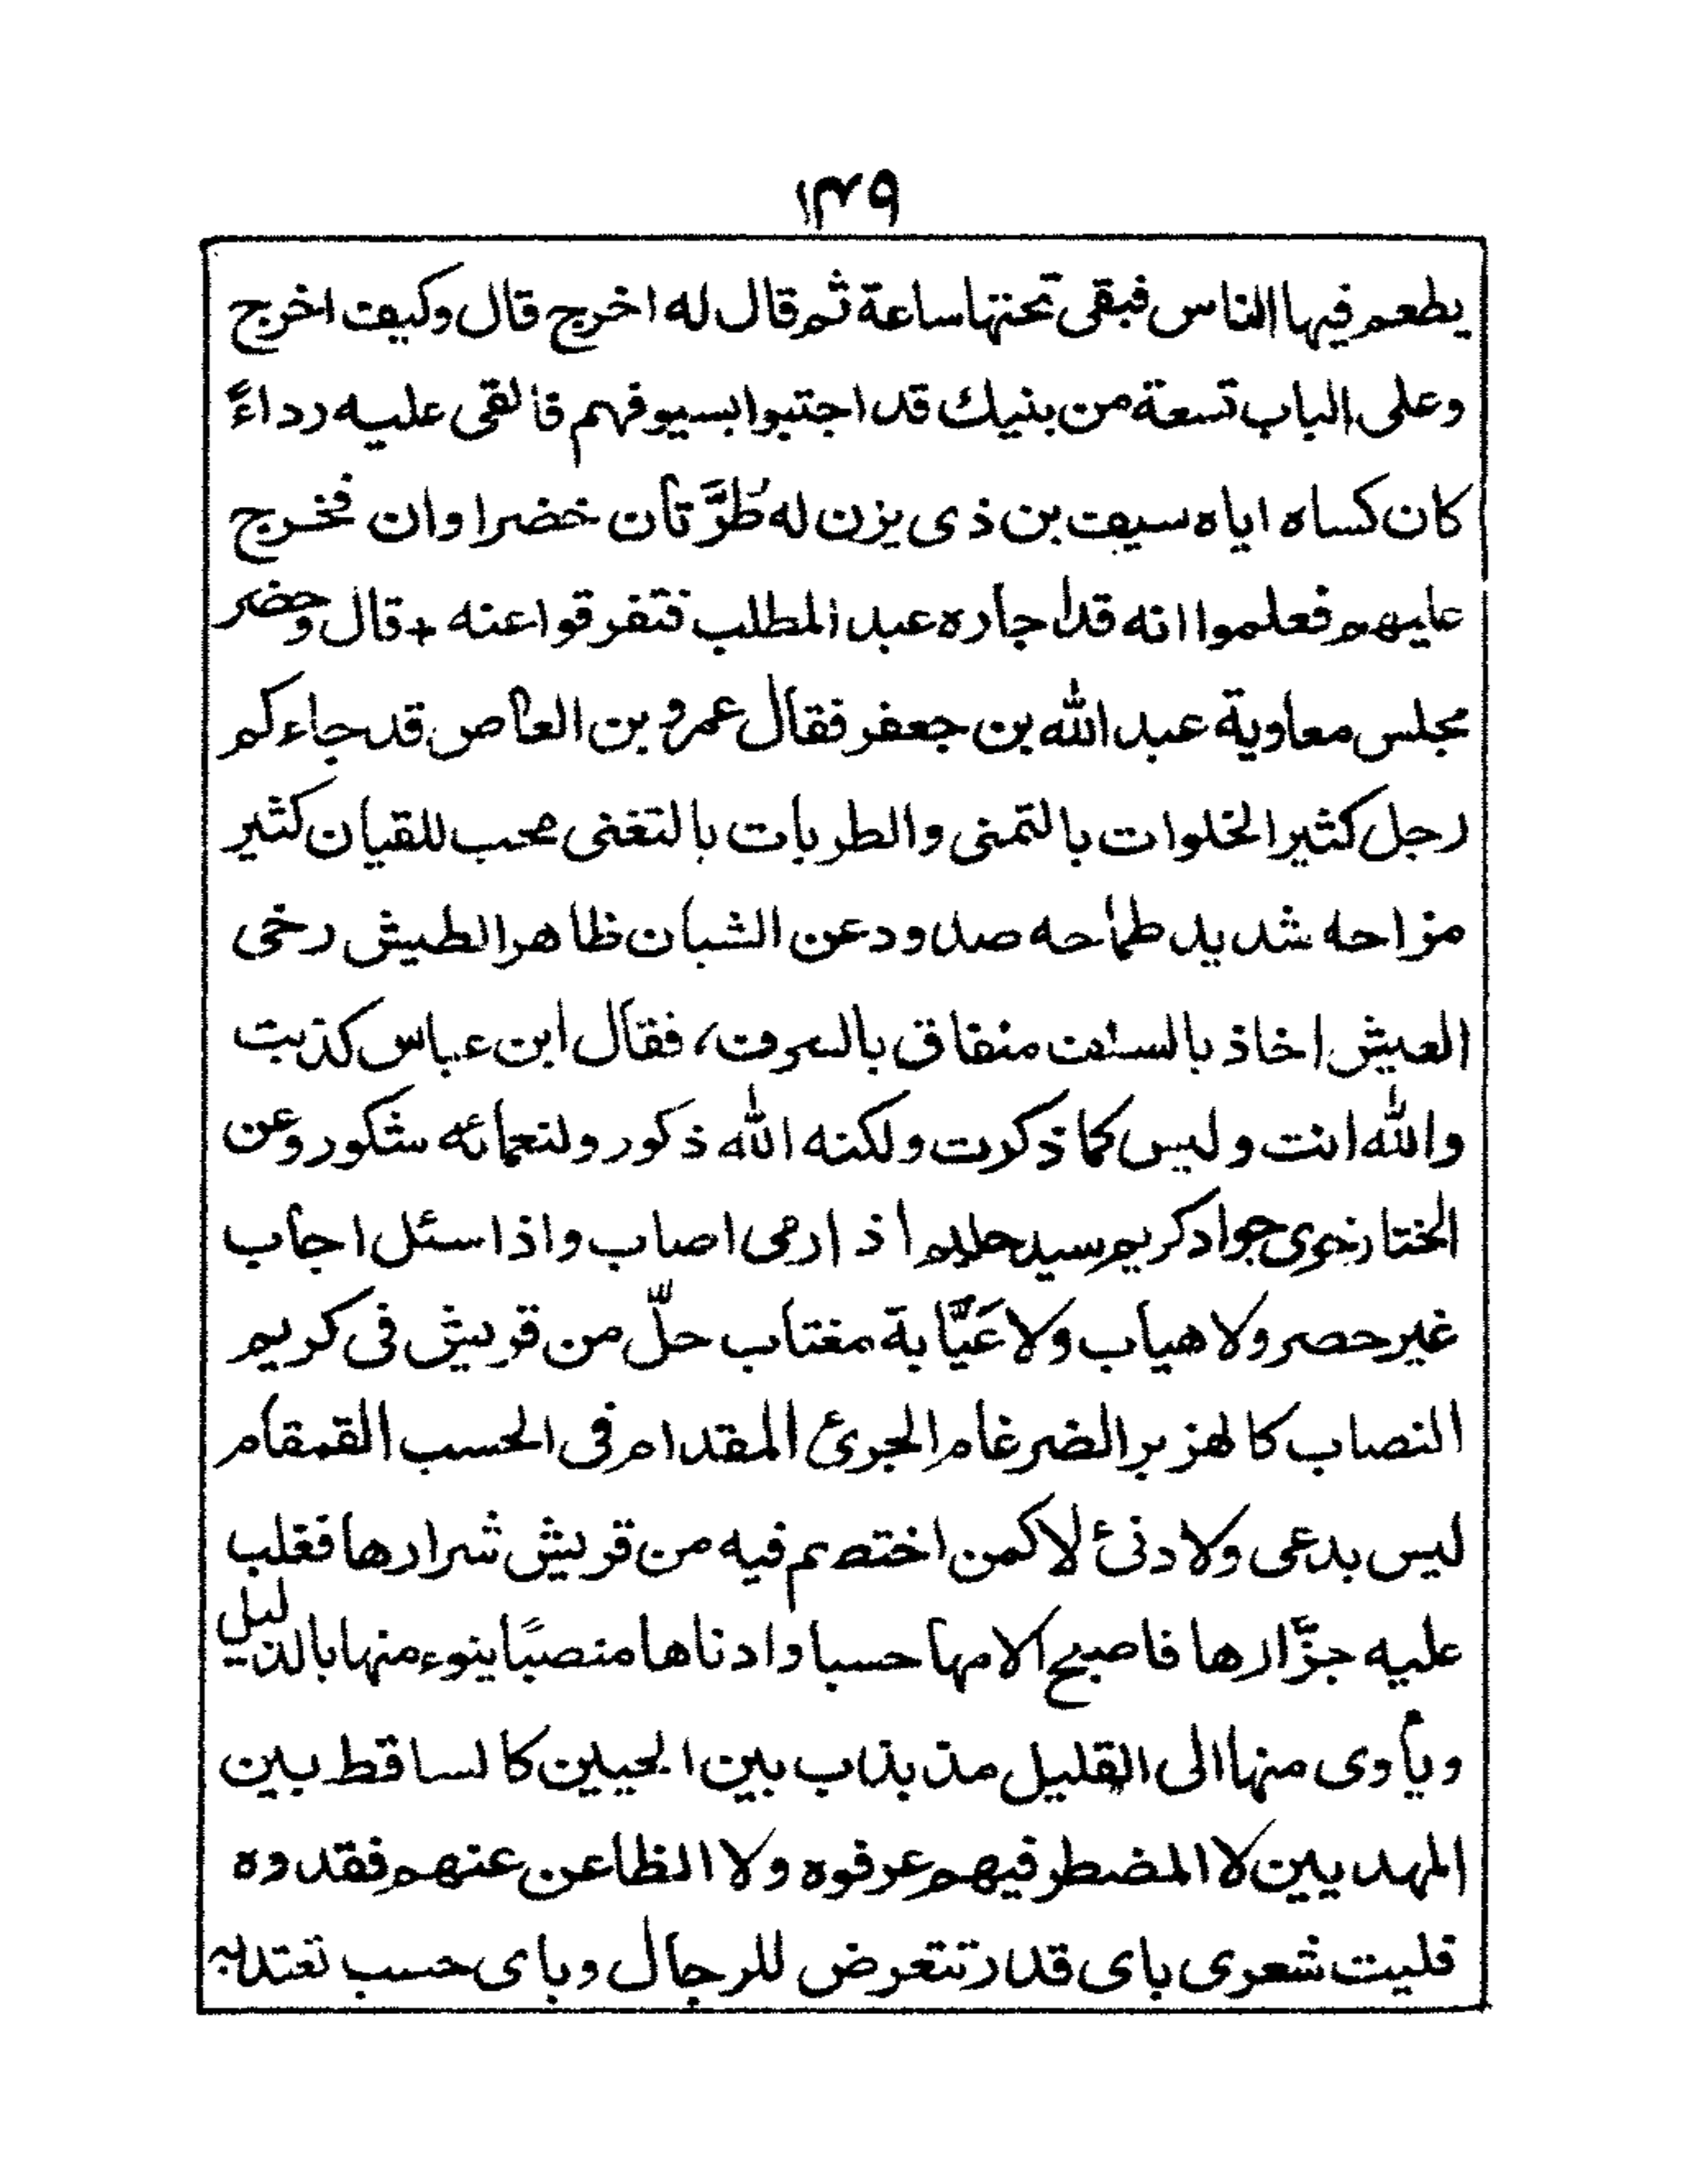 ١٣٩
يطعم فيها الناس فبقى تحتها ساعة ثم قال له اخرج قال وكيف اخرج
وعلى الباب تسعة من بنيك قد اجتبوا بسيوفهم فالقى عليه رداءً
كان كساه اياه سيف بن ذى يزن له طُرَّتان خضراوان فخرج
عليهم فعلموا انه قد اجاره عبد المطلب فتفرقوا عنه + قال وحضر
مجلس معاوية عبد الله بن جعفر فقال عمرو بن العاص قد جاءكم
رجل كثير الخلوات بالتمنى والطربات بالتغنى محب للقيان كثير
مزاحه شديد طماحه صدود عن الشبان ظاهر الطيش رخى
العيش اخاذ بالسلف منفاق بالسرف، فقال ابن عباس كذبت
والله انت وليس كما ذكرت ولكنه الله ذكور ولنعمائه شكور وعن
الخنا زجور جواد كريم سيد حليم اذا رمى اصاب واذا سئل اجاب
غير حصر ولا هياب ولا عَيَّابة مغتاب حلّ من قريش فى كريم
النصاب كالهزبر الضرغام الجرئ المقدام فى الحسب القمقام
ليس بدعى ولا دنئ لا كمن اختصم فيه من قريش شرارها فغلب
عليه جزَّارها فاصبح الامها حسبا وادناها منصبًا ينوء منها بالذليل
ويأوى منها الى القليل مذبذاب بين الحيين كالساقط بين
المهديين لا المضطر فيهم عرفوه ولا الظاعن عنهم فقدوه
فليت شعرى باى قدر تتعرض للرجال وباى حسب تعتد به